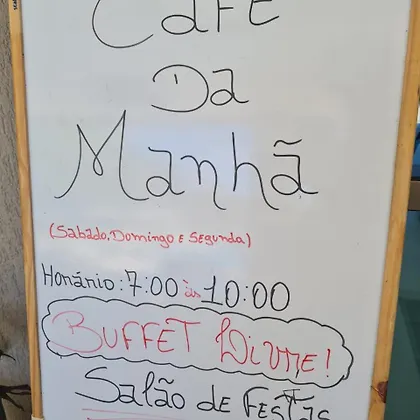 CAFÉ
Da
Manhã
(Sabado, Domingo e Segunda)
Honánio: 7:00 às 10:00
BUFFET LIVRE!
Salão de Festas